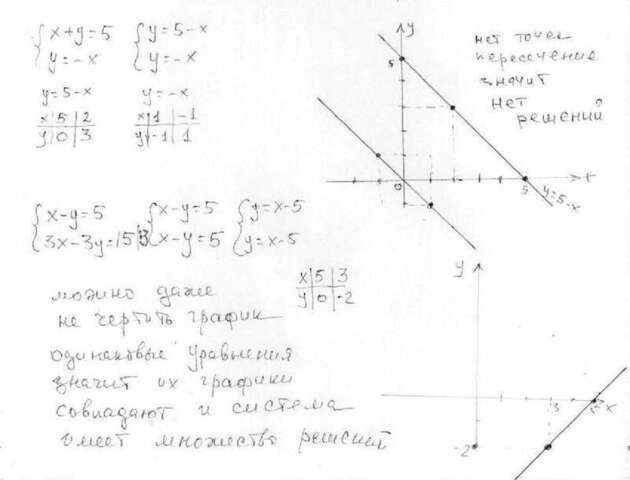 {x+y=5 {y=5-x
{y=-x {y=-x
y=5-x y=-x
x|5|2 x|1|-1
y|0|3 y|-1|1
y
5
0
5
y=5-x
нет точек
пересечение
значит
нет
решений
{x-y=5 {x-y=5 {y=x-5
{3x-3y=15|3 {x-y=5 {y=x-5
x|5|3
y|0|-2
можно даже
не чертить график
одинаковые уравнения
значит их графики
совпадают и система
имеет множество решений
y
3
x
-2